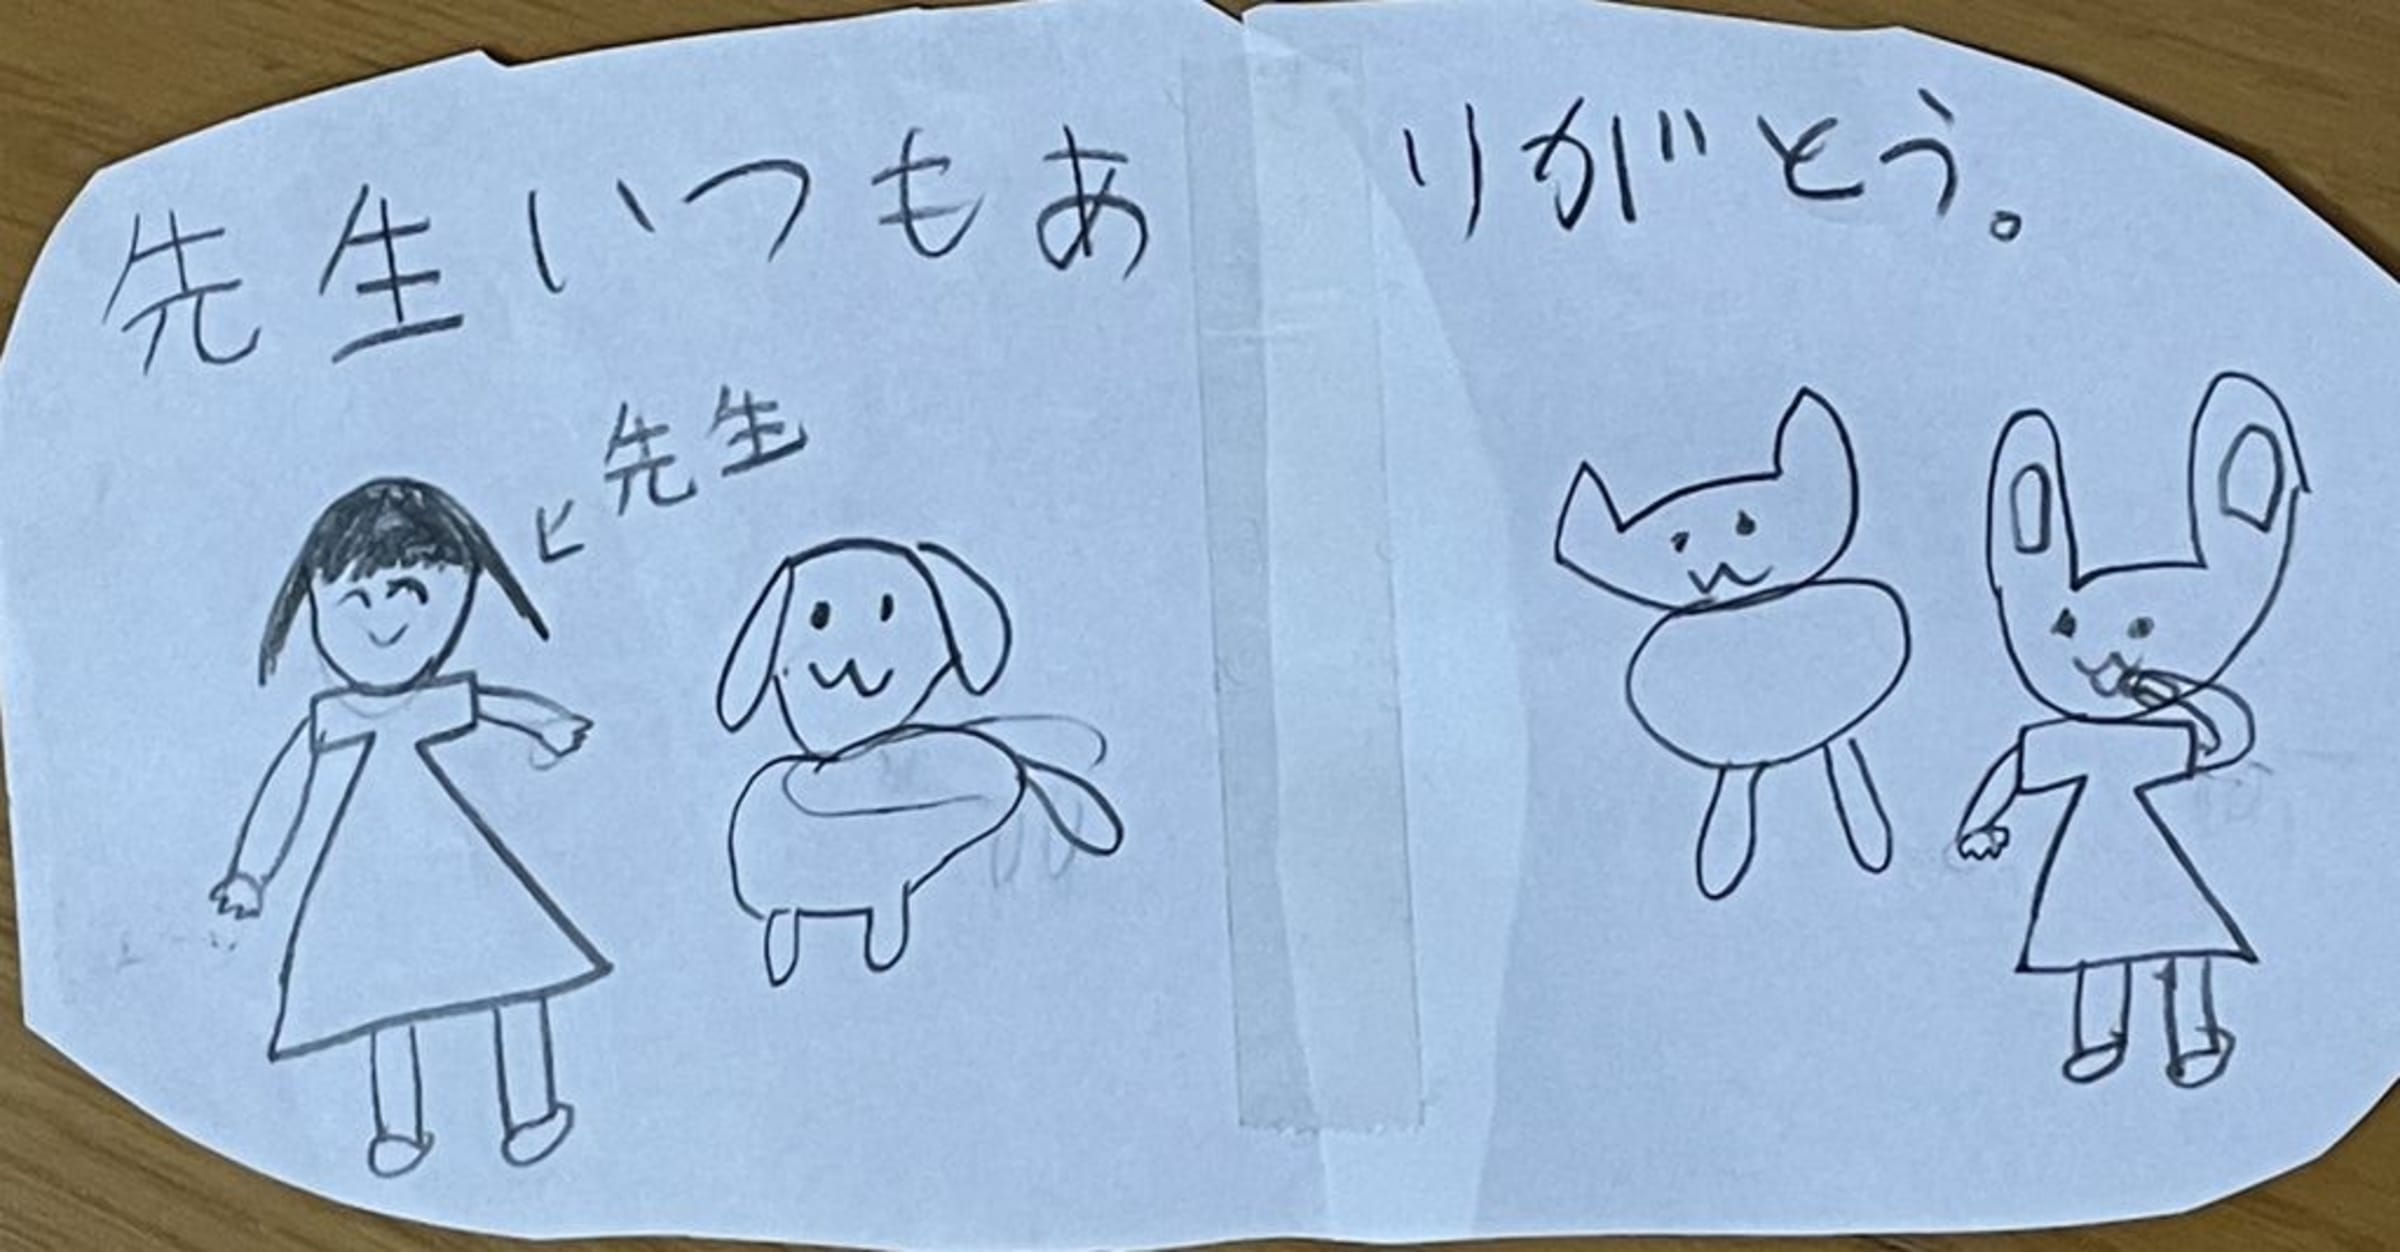 先生いつもありがとう。
先生